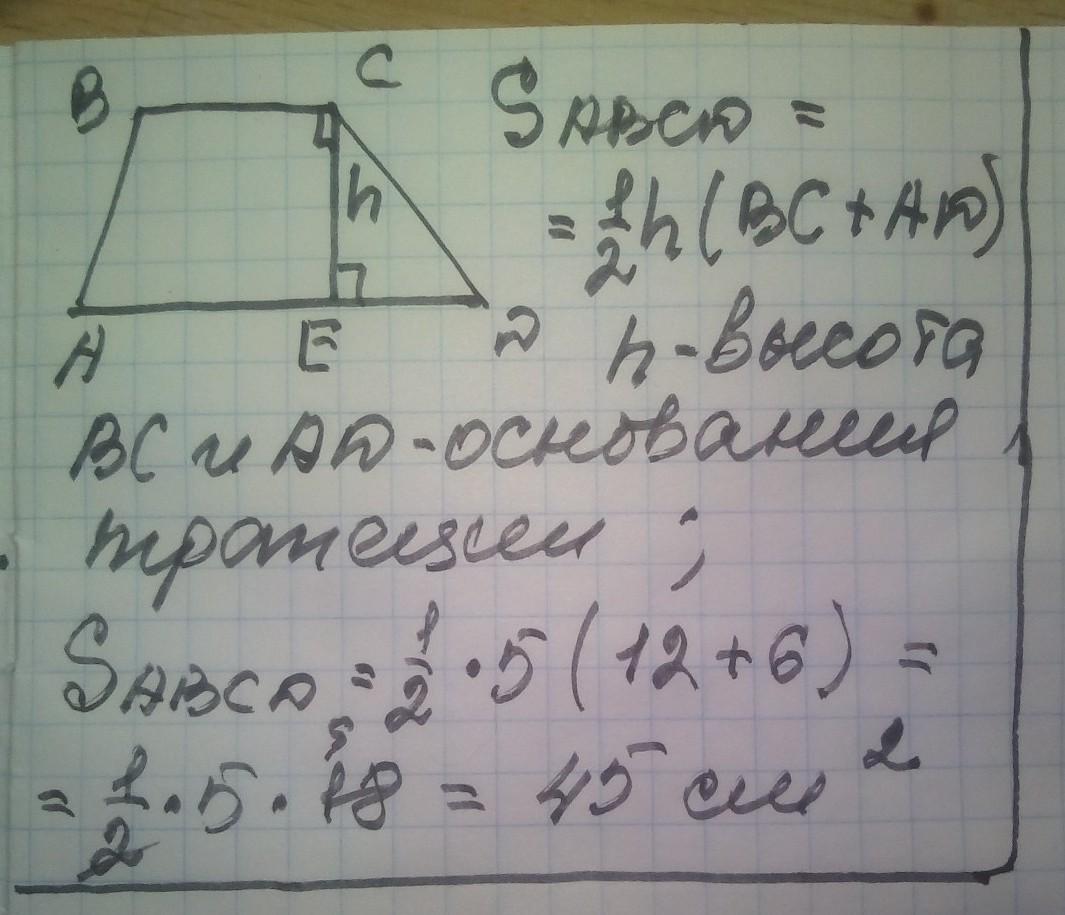 B
C
h
A
E
D
S ABCD =
= 1/2 h (BC + AD)
h - высота
BC и AD - основания
трапеции ;
S ABCD = 1/2 · 5 (12 + 6) =
9
= 1/2 · 5 · 18 = 45 см²